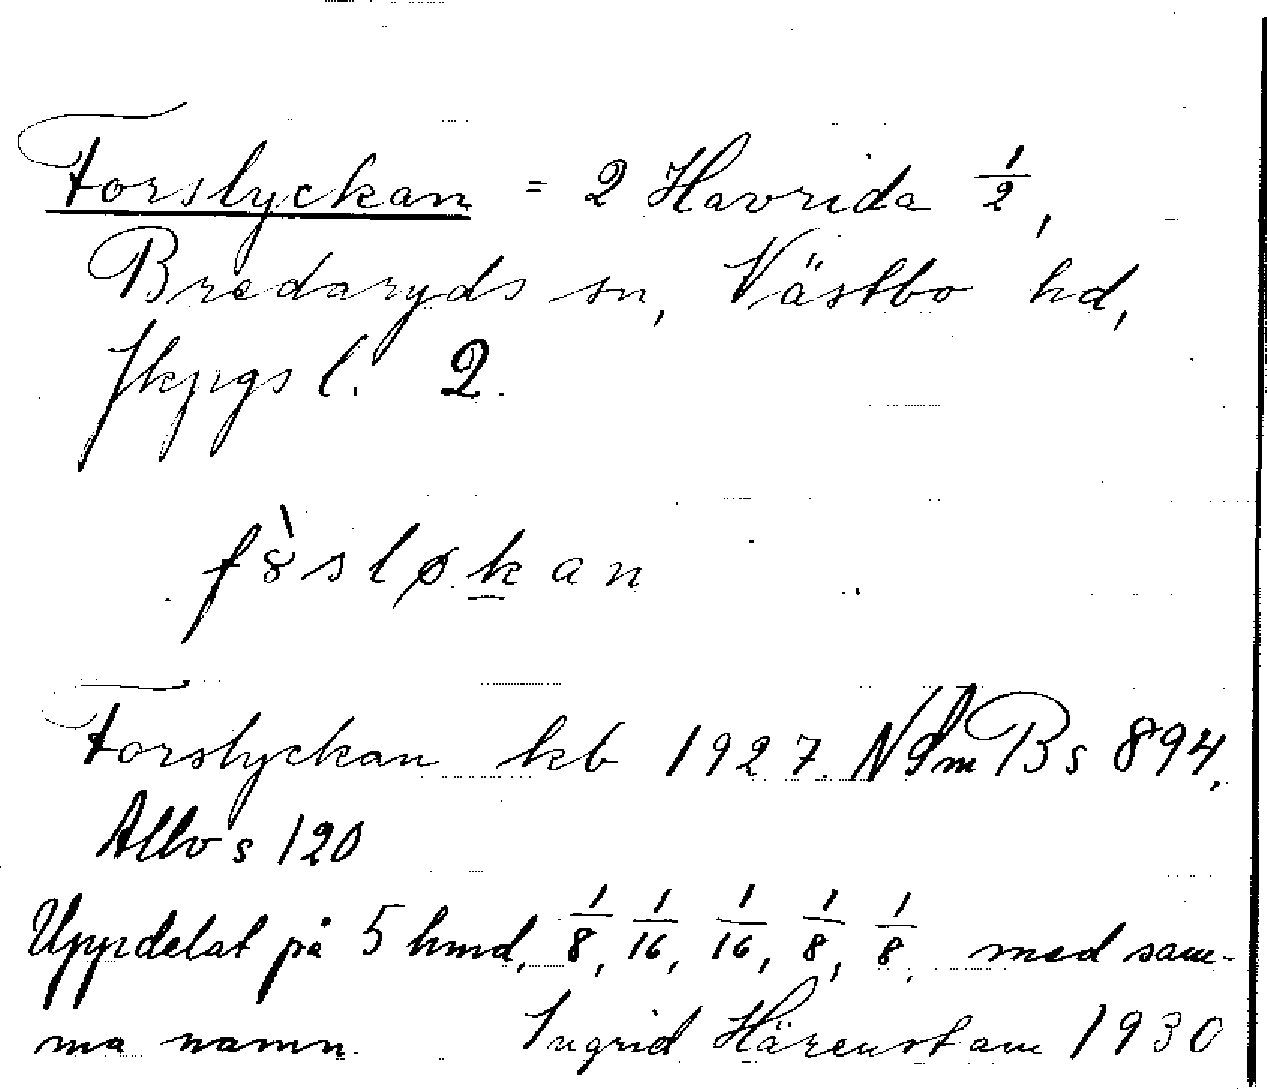 Forslyckan = 2 Havrida 1/2,
Bredaryds sn, Västbo hd,
Jkpgs l. 2.
fòsløkan
Forslyckan kb 1927. Bs 894,
Allbo s 120
Uppdelat på 5 hmd, 1/8, 1/16, 1/16, 1/8, 1/8. med sam-
ma namn. Ingrid Härenstam 1930